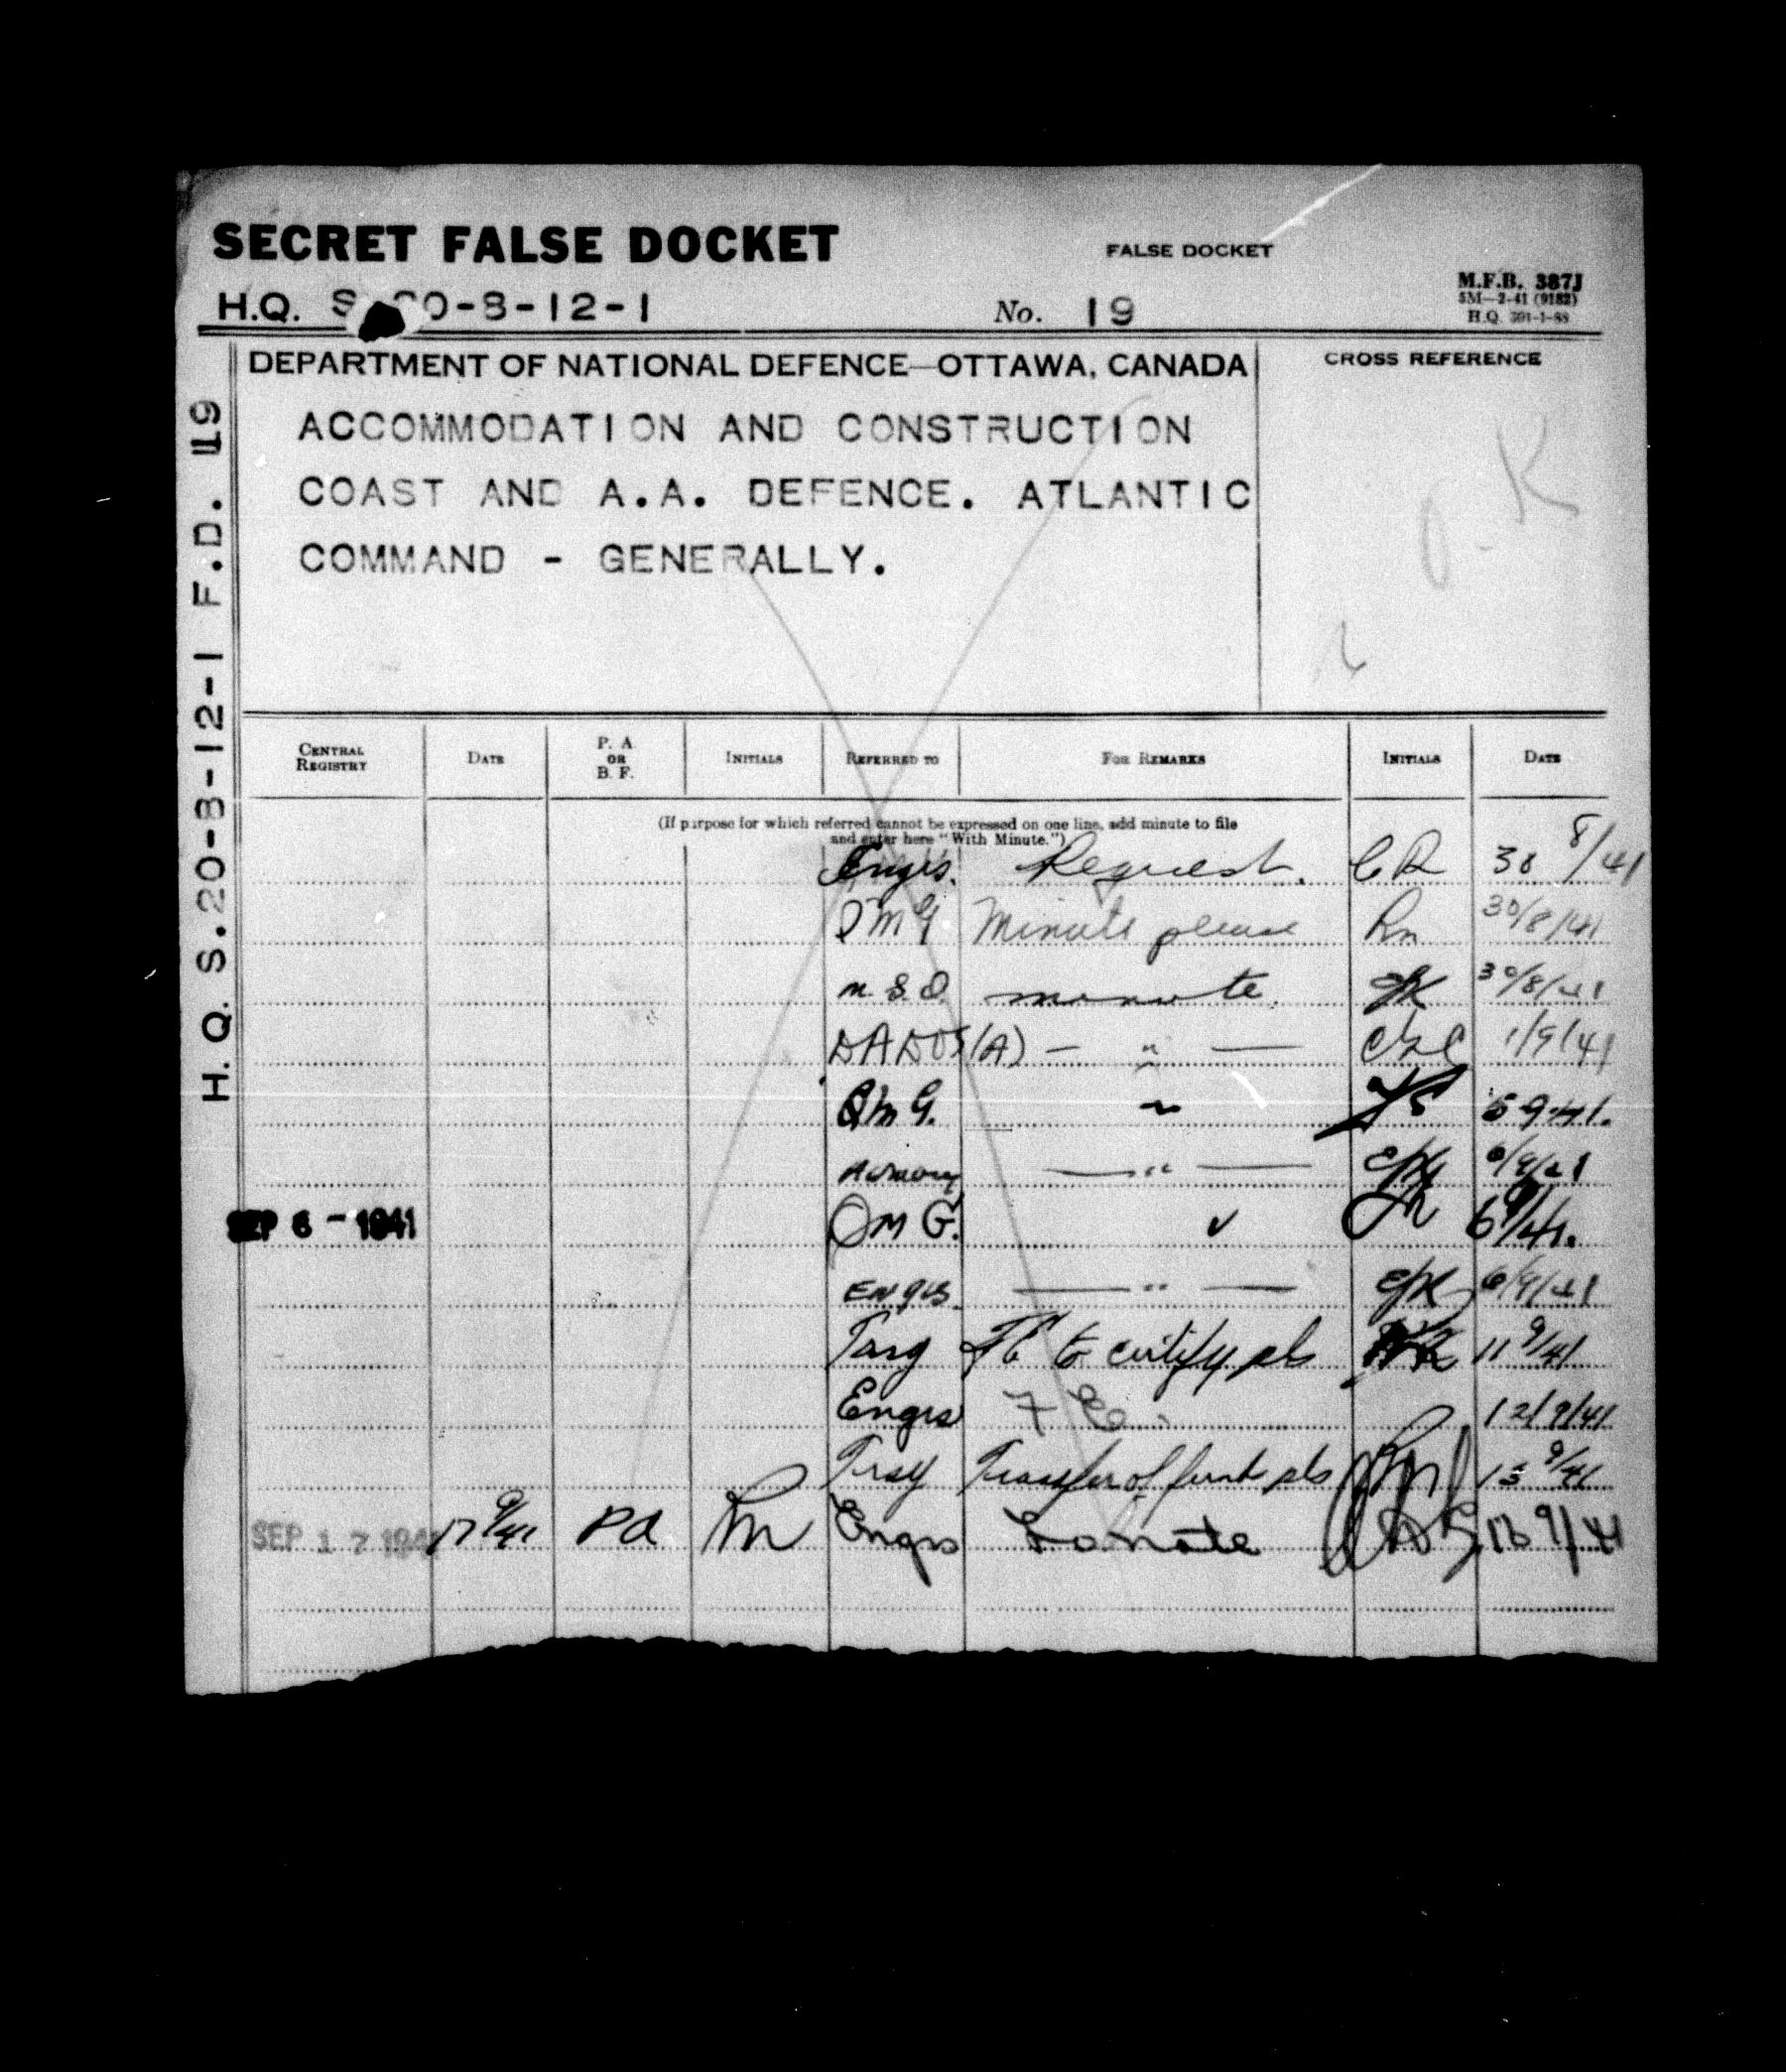 SECRET FALSE DOCKET
FALSE DOCKET
M.F.B. 387J
5M—2-41 (9182)
H.Q. 391-1-88
H.Q. S 20-8-12-1
No. 19
H.Q. S.20-8-12-1 F.D. 19
DEPARTMENT OF NATIONAL DEFENCE—OTTAWA, CANADA
CROSS REFERENCE
ACCOMMODATION AND CONSTRUCTION
COAST AND A.A. DEFENCE. ATLANTIC
COMMAND - GENERALLY.
O.K
CENTRAL REGISTRY DATE P. A OR B. F. INITIALS REFERRED TO FOR REMARKS INITIALS DATE
(If purpose for which referred cannot be expressed on one line, add minute to file
and enter here "With Minute.")
Engrs. Request. CR 30 8/41
Minute please Rn 30/8/41
minute. 30/8/41
DADOS(A) — " — 1/9/41
QMG. " 5 9 41.
— " — 6/9/41
SEP 6 - 1941 QMG. 6 9/41.
Engrs. — " — 6/9/41
to certify pls 11 9/41
Engrs 12/9/41
Transfer of funds pls 9/41
SEP 17 1941 17 9/41 PA Rn Engrs To note 9/41